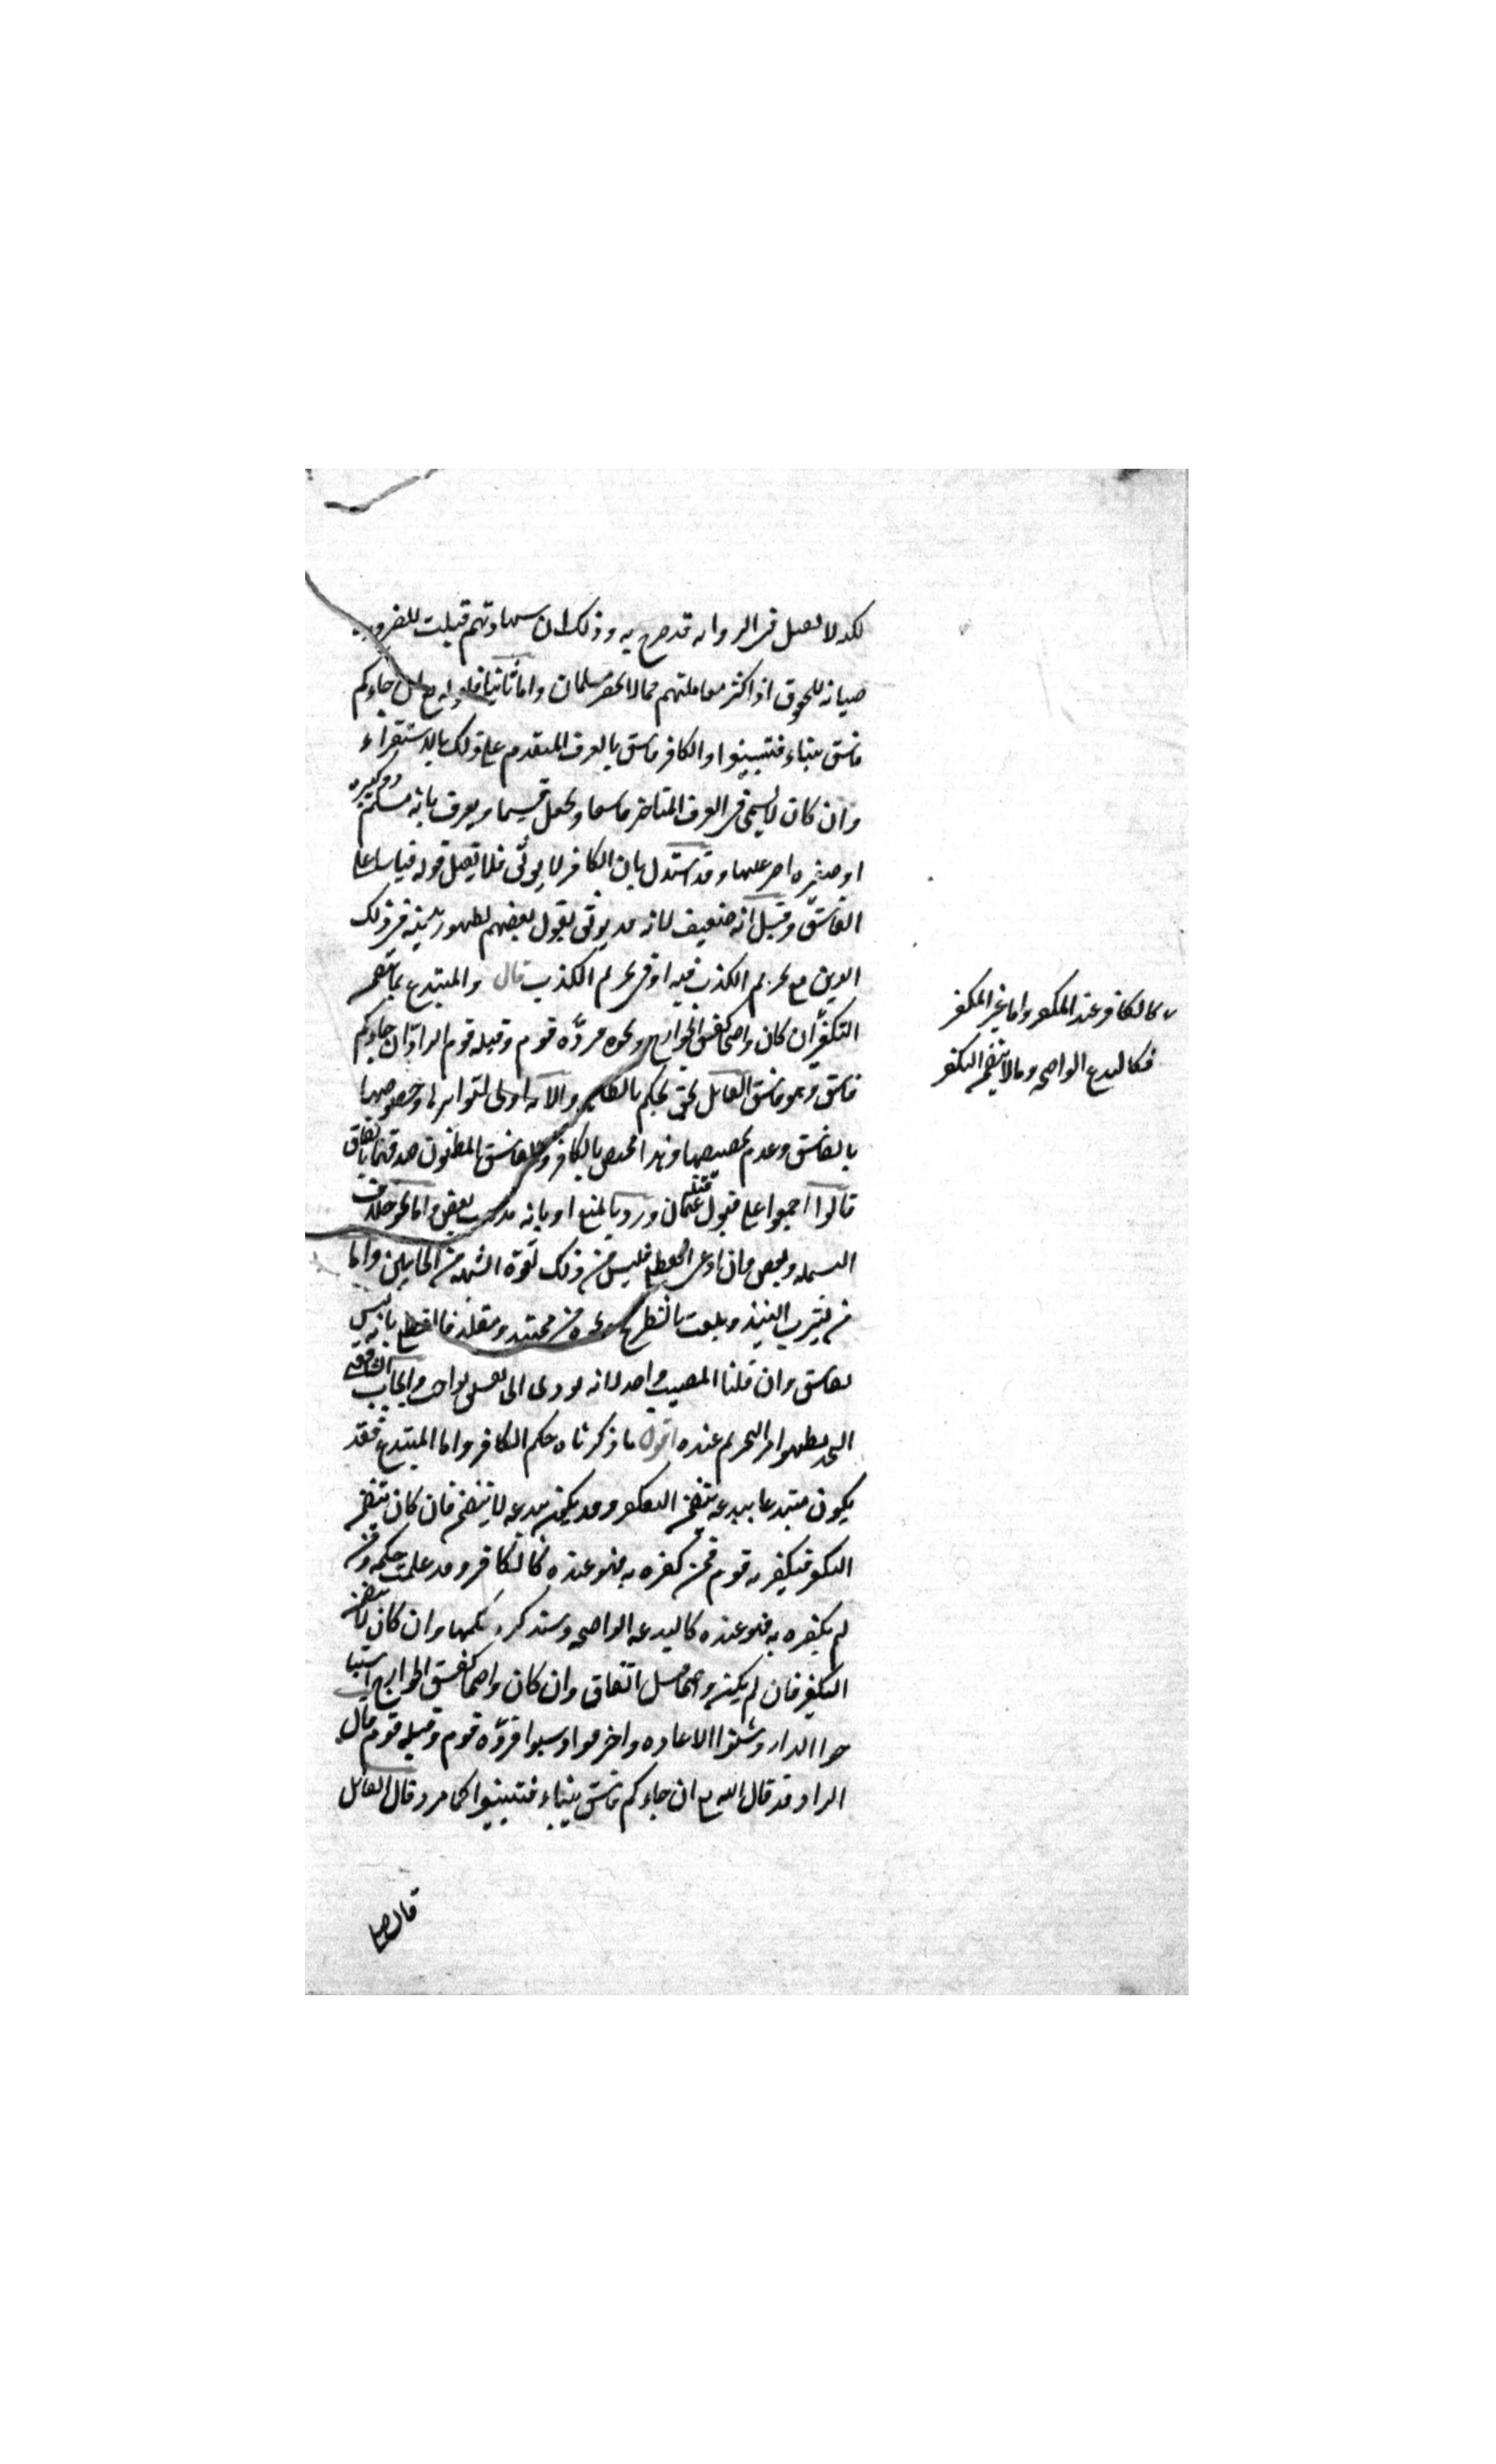 لكنه لا يقبل في الرواية قد صرح به وذلك لان شهادتهم قبلت للضرورة
صيانة للحقوق اذ اكثر معاملتهم مما لا يحضره مسلمان واما ثانيا فلقوله تع ان جاءكم
فاسق بنباء فتبينوا والكافر فاسق بالعرف المتقدم على قولك بالاستقراء
وان كان لا يسمى في العرف المتاخر فاسقا ويجعل قسيما ويعرف بانه مسلم ذو كبيرة
او صغيرة اصر عليها وقد استدل بان الكافر لا يوثق فلا تقبل قوله قياسا على
الفاسق وقيل انه ضعيف لانه قد يوثق بقول بعضهم لظهور تدينه في ذلك
الدين مع تحريم الكذب فيه او في تحريم الكذب قال والمبتدع بما يتضمن
التكفير ان كان واضحا كفسق الخوارج ونحوه فردّه قوم وقبله قوم الراد ان جاءكم
فاسق وهو فاسق القابل نحن نحكم بالظاهر والاية اولى لتواترها وخصوصها
بالفاسق وعدم تخصيصها وهذا مخصص بالكافر والفاسق المظنون صدقهما باتفاق
قالوا اجمعوا على قبول قتلة عثمان ورد بالمنع او بانه مذهب بعض واما نحو خلاف
البسملة وبعض وان ادعى القطع فليس من ذلك لقوة الشبهة من الجانبين واما
من يشرب النبيذ ويلعب بالشطرنج ونحوه من مجتهد ومقلد فالقطع بانه ليس
بفاسق وان قلنا المصيب واحد لانه يودى الى تفسيق بواجب وايجاب الشافعي
الحد لظهور امر التحريم عنده اقول ما ذكرناه حكم الكافر واما المبتدع فقد
يكون مبتدعا ببدعة يتضمن التكفير وقد يكون ببدعة لا يتضمن فان كان يتضمن
التكفير فيكفر به قوم فمن كفره به فهو عنده كالكافر وقد علمت حكمه ومن
لم يكفره به فهو عنده كالبدعة الواضحة وسنذكر حكمها وان كان لا يتضمن
التكفير فان لم يكن واضحا قبل اتفاق وان كان واضحا كفسق الخوارج استبا
حوا الدار وشنوا الاغارة واحرقوا وسبوا فردّه قوم وقبله قوم قال
الراد قد قال الله تع ان جاءكم فاسق بنباء فتبينوا كما مر وقال القابل
كالكافر عند المكفر واما غير المكفر
فكالبدع الواضحة وما لا يتضمن التكفير